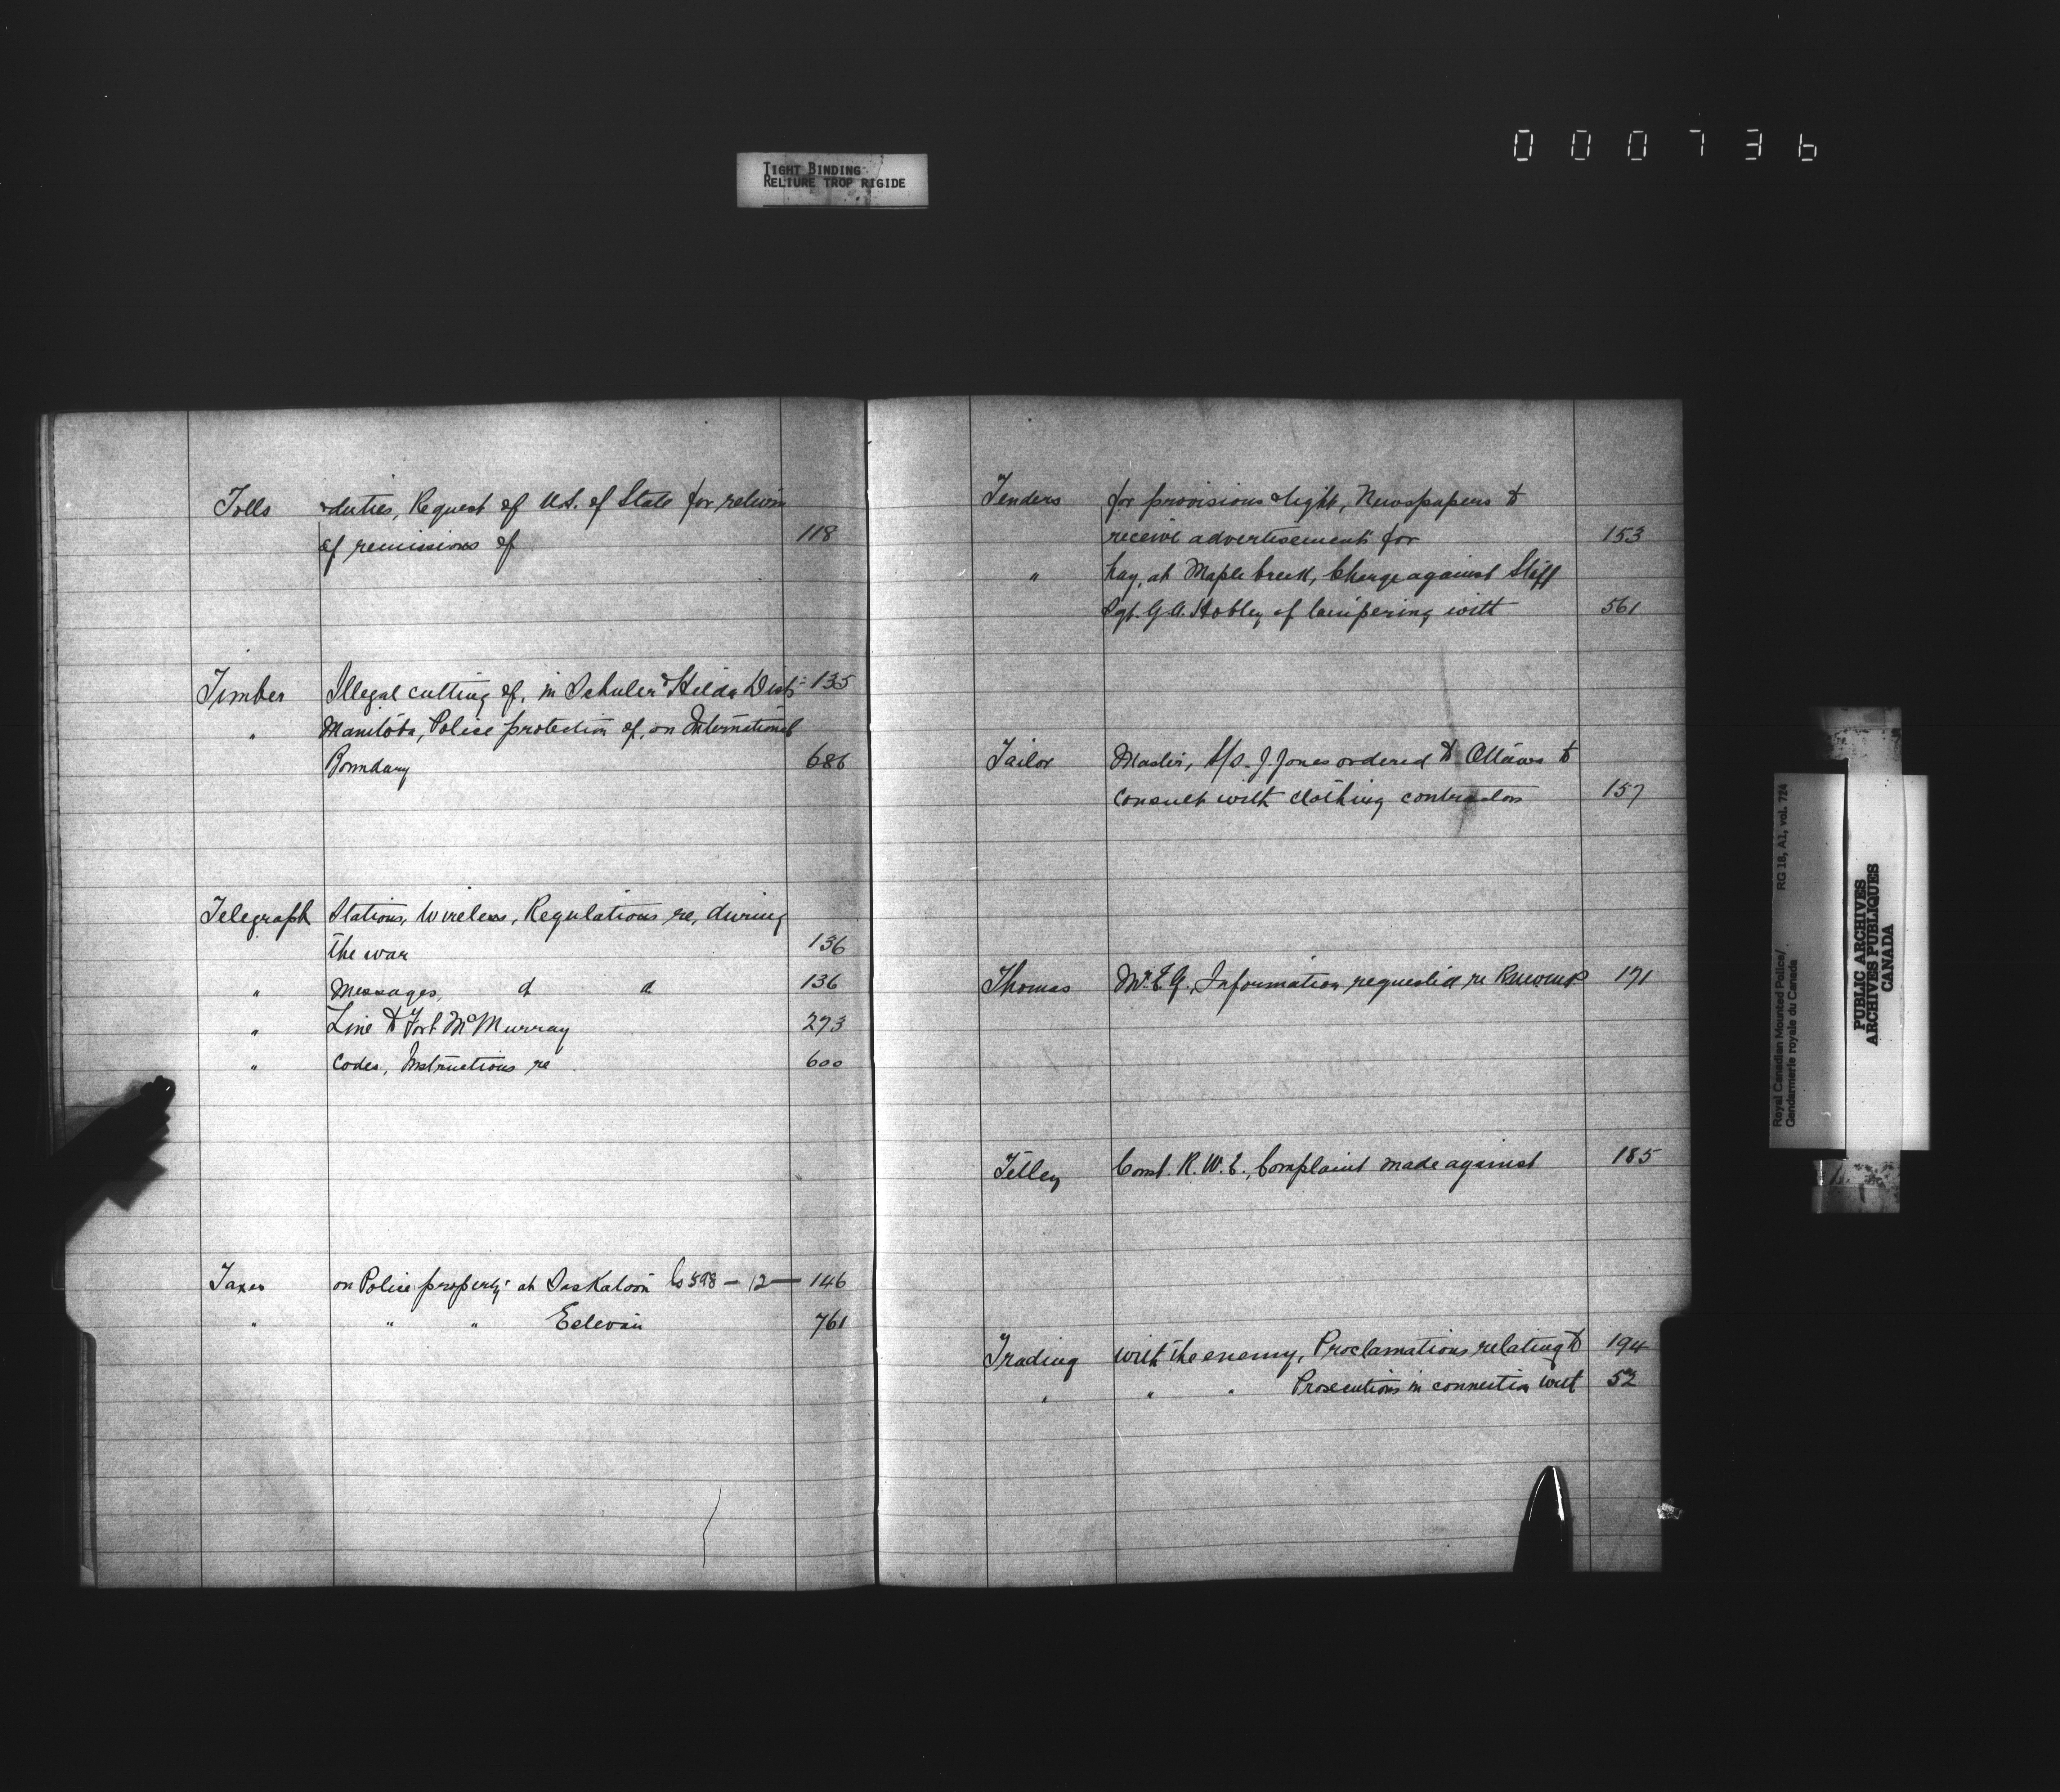 TIGHT BINDING
RELIURE TROP RIGIDE
000736
Tolls & duties, Request of U.S. of State for return
of remissions of 118
Timber Illegal cutting of, in Schuler & Hilda Dist- 135
" Manitoba, Police protection of, on International
Boundary 686
Telegraph Stations, Wireless, Regulations re, during
the war 136
" Messages, d d 136
" Line to Fort McMurray 273
" Codes, Instructions re 600
Taxes on Police property at Saskatoon Cs 598 - 12 - 146
" " " Estevan 761
Tenders for provisions & light, Newspapers to
receive advertisements for 153
" hay, at Maple Creek, Charge against Staff
Sgt. G.A. Hobley of tampering with 561
Tailor Master, S/S. J Jones ordered to Ottawa to
consult with clothing contractors 157
Thomas Mr. E.G., Information requested re 171
Tetley Const. R.W.E., Complaint made against 185
Trading with the enemy, Proclamations relating to 194
" " " Prosecutions in connection with 52
Royal Canadian Mounted Police/
Gendarmerie royale du Canada
RG 18, A1, vol. 724
PUBLIC ARCHIVES
ARCHIVES PUBLIQUES
CANADA